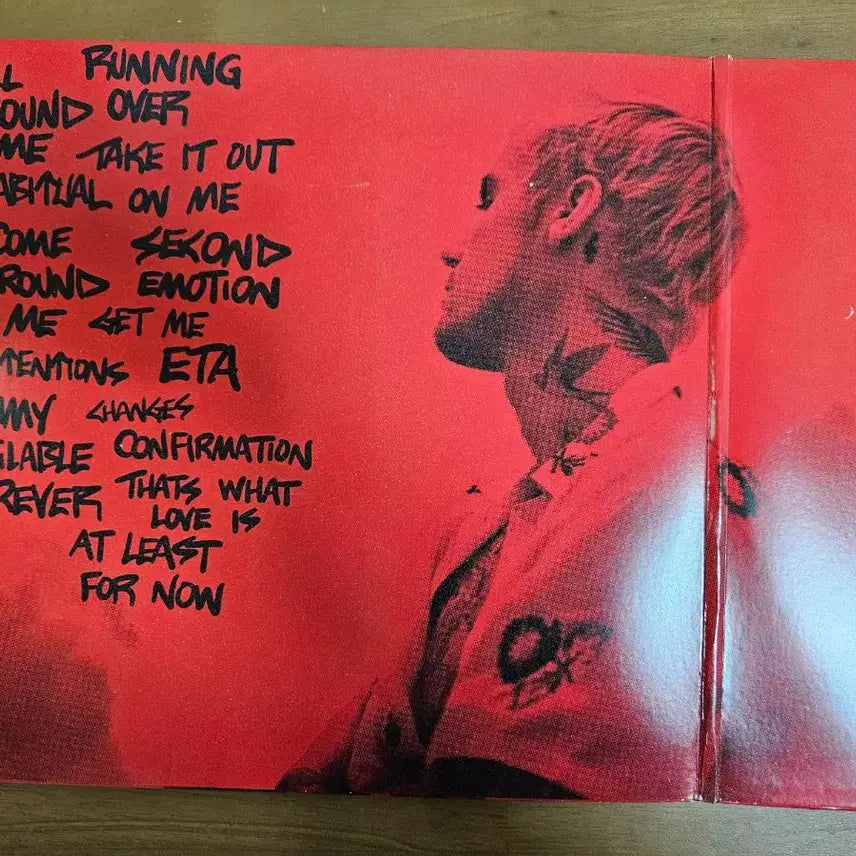 L RUNNING
OUND OVER
ME TAKE IT OUT
ABITUAL ON ME
COME SECOND
ROUND EMOTION
ME GET ME
TENTIONS ETA
MMY CHANGES
ILABLE CONFIRMATION
REVER THATS WHAT
LOVE IS
AT LEAST
FOR NOW